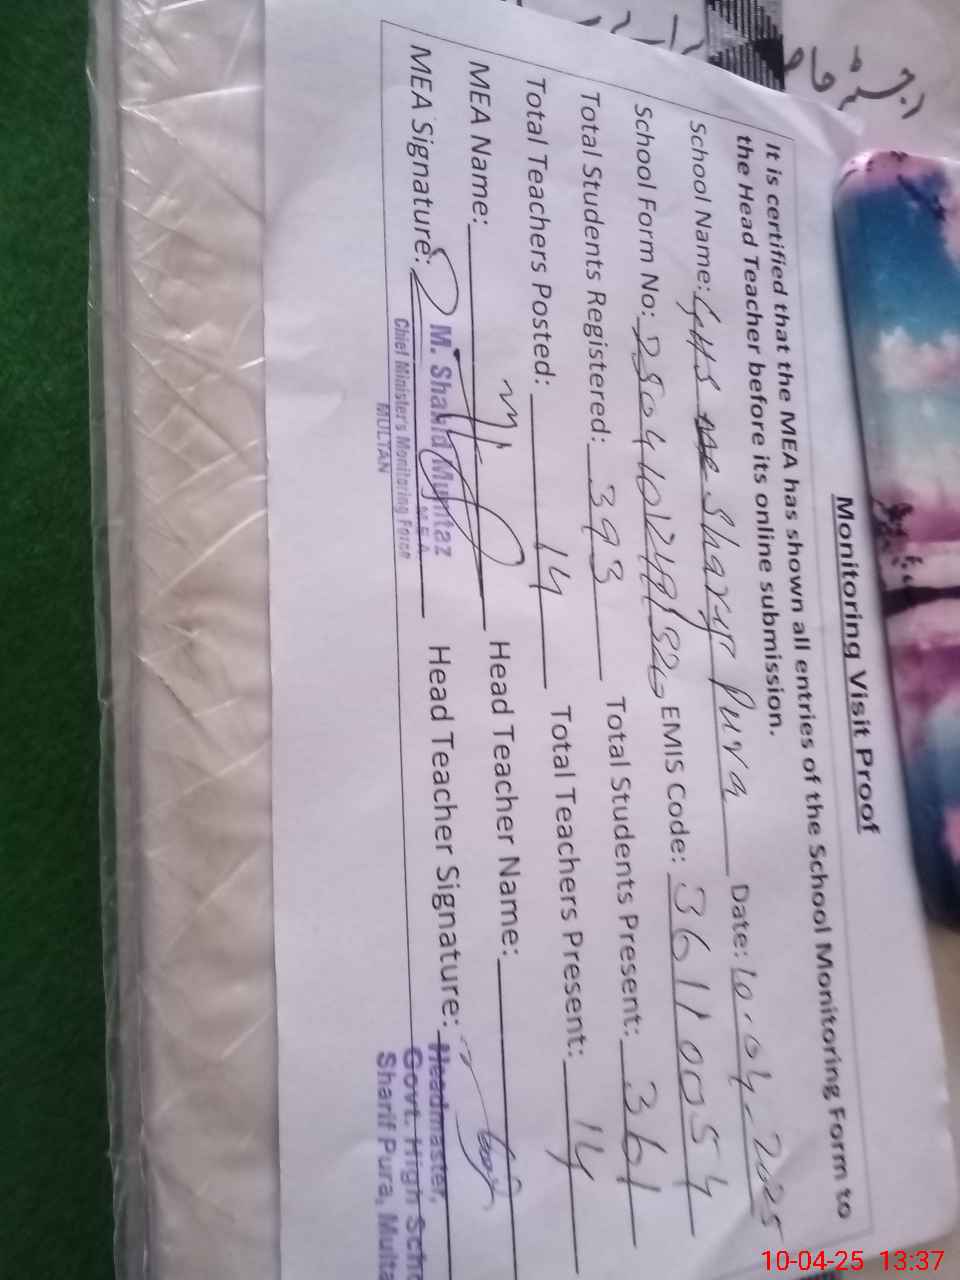 Monitoring Visit Proof
It is certified that the MEA has shown all entries of the School Monitoring Form to
the Head Teacher before its online submission.
School Name: GHS Sharif Pura Date: 10.04.2025
School Form No: EMIS Code: 36110054
Total Students Registered: 393 Total Students Present: 361
Total Teachers Posted: 14 Total Teachers Present: 14
MEA Name: Head Teacher Name:
MEA Signature: Head Teacher Signature:
M. Shahid Mumtaz
M.E.A
Chief Minister's Monitoring Force
MULTAN
Headmaster,
Govt. High Scho
Sharif Pura, Multa
10-04-25 13:37